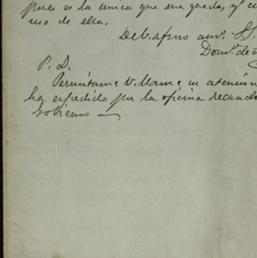 pues es la unica que me queda, y c
mo de ella.
De V. afmo am.º S. S.
Dom.º de
P. D.
Permitame V. llame su atención
ha espedido por la oficina recaud
Gobierno